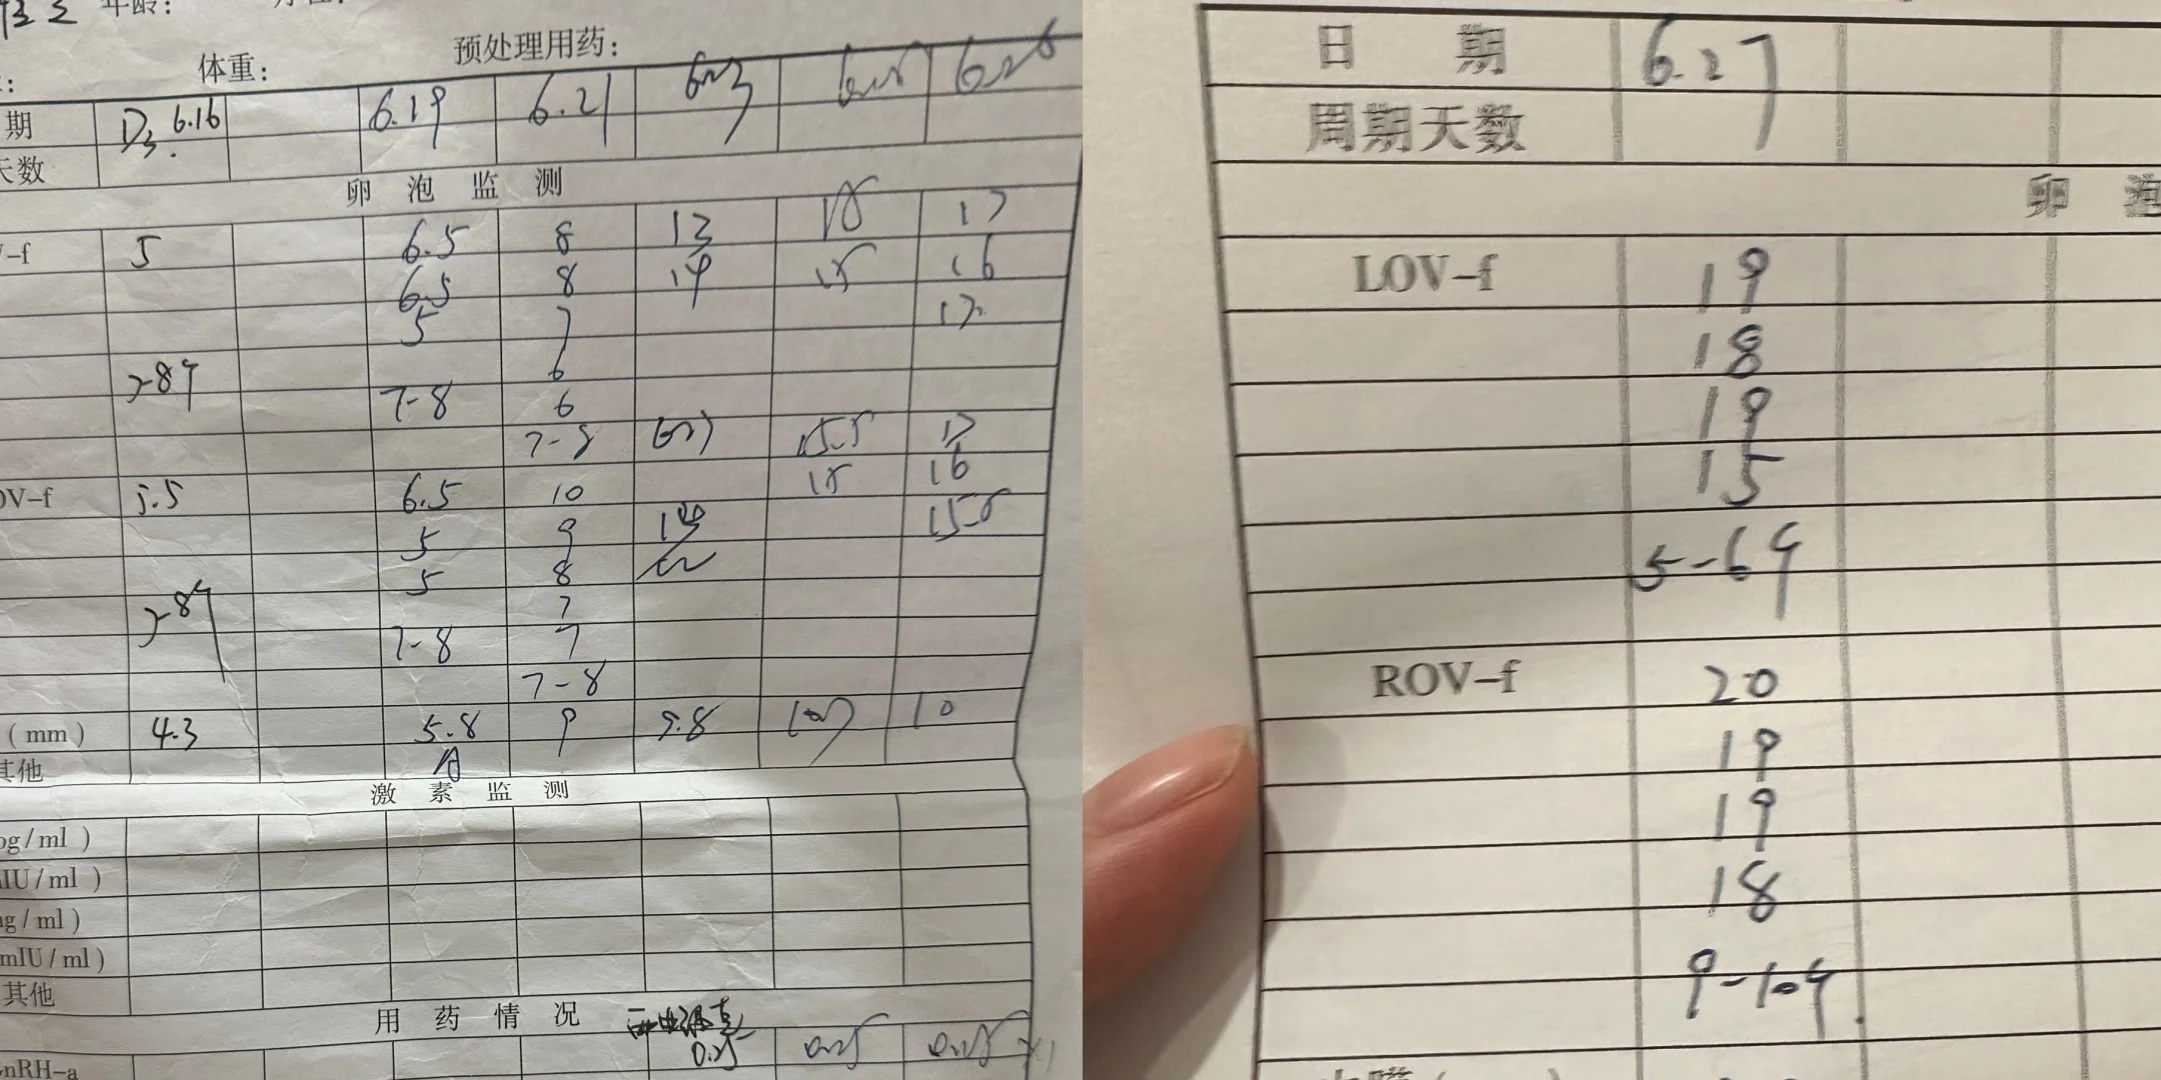 年龄:
体重: 预处理用药:
期 D3 6.16 6.19 6.21 6.23 6.25 6.26
天数
卵 泡 监 测
-f 5 6.5 8 13 18 17
6.5 8 14 15 16
5 7 17
6
>8个 7-8 6
7-8 15.5 17
OV-f 5.5 6.5 10 15 16
5 9 15.5
5 8
7
>8个 7-8 7
7-8
(mm) 4.3 5.8 9 9.8 10 10
其他 A
激 素 监 测
pg/ml)
mIU/ml)
ng/ml)
mIU/ml)
其他
用 药 情 况
0.25 0.25 0.25
GnRH-a
日 期 6.27
周期天数
卵 泡
LOV-f 19
18
19
15
5-6个
ROV-f 20
19
19
18
9-10个